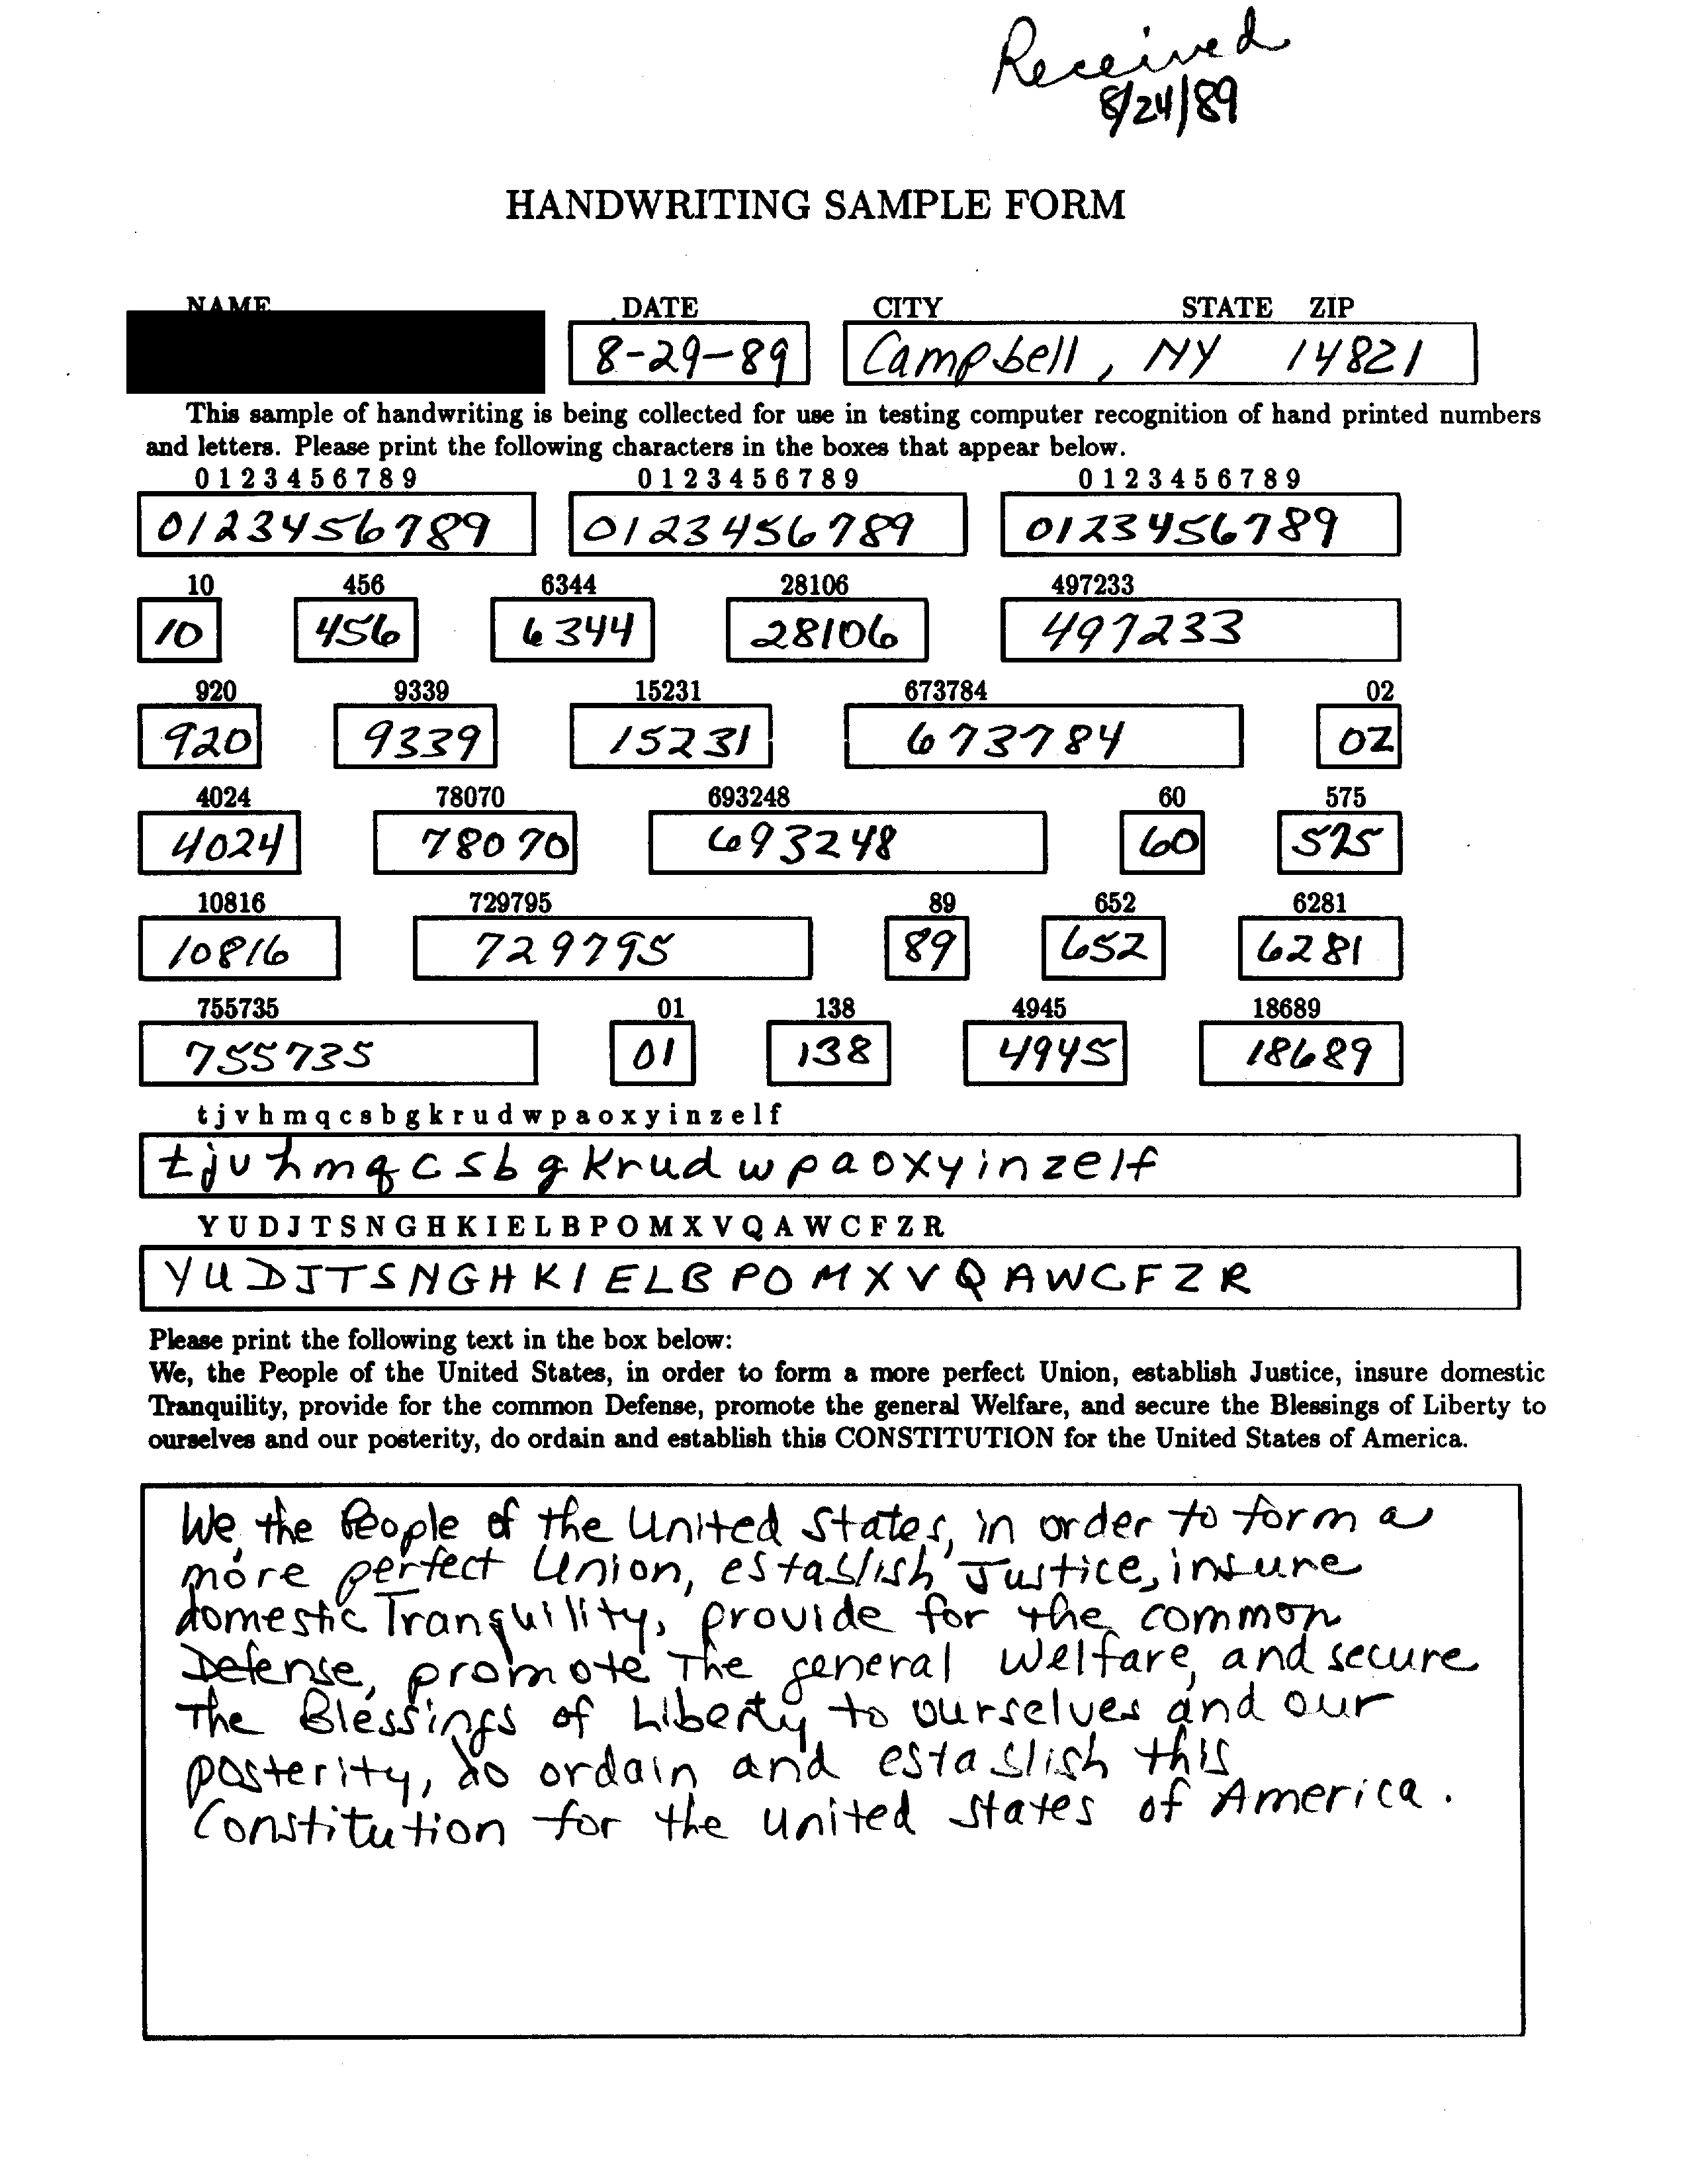 Received
8/24/89
HANDWRITING SAMPLE FORM
NAME DATE CITY STATE ZIP
8-29-89 Campbell, NY 14821
This sample of handwriting is being collected for use in testing computer recognition of hand printed numbers
and letters. Please print the following characters in the boxes that appear below.
0 1 2 3 4 5 6 7 8 9 0 1 2 3 4 5 6 7 8 9 0 1 2 3 4 5 6 7 8 9
0123456789 0123456789 0123456789
10 456 6344 28106 497233
10 456 6344 28106 497233
920 9339 15231 673784 02
920 9339 15231 673784 02
4024 78070 693248 60 575
4024 78070 693248 60 575
10816 729795 89 652 6281
10816 729795 89 652 6281
755735 01 138 4945 18689
755735 01 138 4945 18689
t j v h m q c s b g k r u d w p a o x y i n z e l f
t j v h m q c s b g k r u d w p a o x y i n z e l f
Y U D J T S N G H K I E L B P O M X V Q A W C F Z R
Y U D J T S N G H K I E L B P O M X V Q A W C F Z R
Please print the following text in the box below:
We, the People of the United States, in order to form a more perfect Union, establish Justice, insure domestic
Tranquility, provide for the common Defense, promote the general Welfare, and secure the Blessings of Liberty to
ourselves and our posterity, do ordain and establish this CONSTITUTION for the United States of America.
We, the People of the United States, in order to form a
more perfect Union, establish Justice, insure
domestic Tranquility, provide for the common
Defense, promote The general Welfare, and secure
The Blessings of Liberty to ourselves and our
posterity, do ordain and establish this
Constitution for the United States of America.